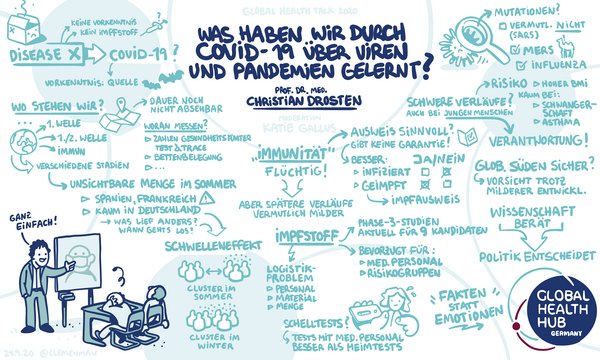 GLOBAL HEALTH TALK 2020
WAS HABEN WIR DURCH
COVID-19 ÜBER VIREN
UND PANDEMIEN GELERNT?
PROF. DR. MED.
CHRISTIAN DROSTEN
MODERATION
KATIE GALLUS
KEINE VORKENNTNIS
KEIN IMPFSTOFF
DISEASE X
COVID-19
?
VORKENNTNIS: QUELLE
WO STEHEN WIR?
1. WELLE
1./2. WELLE
IMMUN
VERSCHIEDENE STADIEN
DAUER NOCH
NICHT ABSEHBAR
WORAN MESSEN?
ZAHLEN GESUNDHEITSÄMTER
TEST & TRACE
BETTENBELEGUNG
...
UNSICHTBARE MENGE IM SOMMER
SPANIEN, FRANKREICH
KAUM IN DEUTSCHLAND
WAS LIEF ANDERS?
WANN GEHTS LOS?
GANZ
EINFACH!
SCHWELLENEFFEKT
CLUSTER IM
SOMMER
CLUSTER IM
WINTER
"IMMUNITÄT"
FLÜCHTIG!
ABER SPÄTERE VERLÄUFE
VERMUTLICH MILDER
AUSWEIS SINNVOLL?
GIBT KEINE GARANTIE!
BESSER: JA/NEIN
INFIZIERT
GEIMPFT
IMPFAUSWEIS
IMPFSTOFF
PHASE-3-STUDIEN
AKTUELL FÜR 9 KANDIDATEN
BEVORZUGT FÜR:
MED. PERSONAL
RISIKOGRUPPEN
LOGISTIK-
PROBLEM
PERSONAL
MATERIAL
MENGE
SCHNELLTESTS!
TESTS MIT MED. PERSONAL
BESSER ALS HEIMTESTS
MUTATIONEN?
VERMUTL. NICHT
(SARS)
MERS
INFLUENZA
RISIKO
HOHER BMI
KAUM BEI:
SCHWANGER-
SCHAFT
ASTHMA
SCHWERE VERLÄUFE?
AUCH BEI JUNGEN MENSCHEN
VERANTWORTUNG!
GLOB. SÜDEN SICHER?
VORSICHT TROTZ
MILDERER ENTWICKL.
WISSENSCHAFT
BERÄT
POLITIK ENTSCHEIDET
FAKTEN
STATT
EMOTIONEN
GLOBAL
HEALTH
HUB
GERMANY